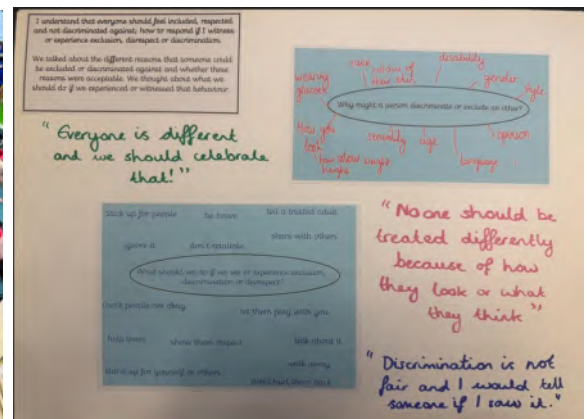 I understand that everyone should feel included, respected
and not discriminated against; how to respond if I witness
or experience exclusion, disrespect or discrimination.
We talked about the different reasons that someone could
be excluded or discriminated against and whether these
reasons were acceptable. We thought about what we
should do if we experienced or witnessed that behaviour.
"Everyone is different
and we should celebrate
that!"
disability
race colour of their skin
gender
style
wearing
glasses
Why might a person discriminate or exclude an other?
How you
look
sexuality
age
opinion
language
height
stick up for people be brave tell a trusted adult
share with others
ignore it don't retaliate
What should we do if we see or experience exclusion,
discrimination or disrespect?
check people are okay
let them play with you
help them show them respect talk about it
walk away
stand up for yourself or others
don't hurt them back
"No one should be
treated differently
because of how
they look or what
they think"
"Discrimination is not
fair and I would tell
someone if I saw it."